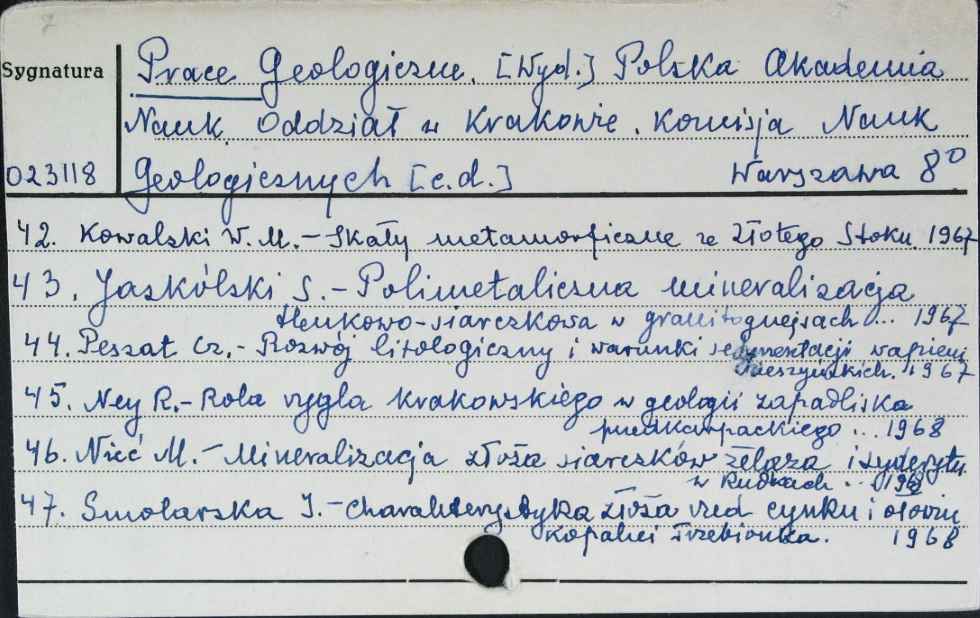 Sygnatura
Prace Geologiczne. [Wyd.] Polska Akademia
Nauk. Oddział w Krakowie. Komisja Nauk
023118 Geologicznych [c.d.] Warszawa 8°
42. Kowalski W. M. – Skały metamorficzne ze Złotego Stoku. 1967
43. Jaskólski S. – Polimetaliczna mineralizacja
tlenkowo-siarczkowa w granitognejsach ... 1967
44. Peszat Cz. – Rozwój litologiczny i warunki sedymentacji wapieni
cieszyńskich. 1967
45. Ney R. – Rola rygla krakowskiego w geologii zapadliska
przedkarpackiego ... 1968
46. Nieć M. – Mineralizacja złoża siarczków żelaza i syderytu
w Rudkach ... 1968
47. Smolarska I. – Charakterystyka złoża rud cynku i ołowiu
kopalni Trzebionka. 1968